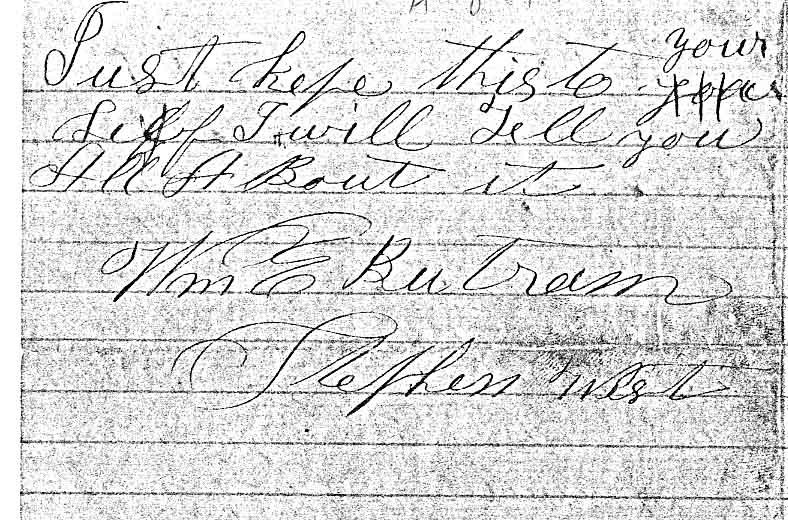 Just kepe this to your
Self I will tell you
All A Bout it
Wm E Butram
Stephen West